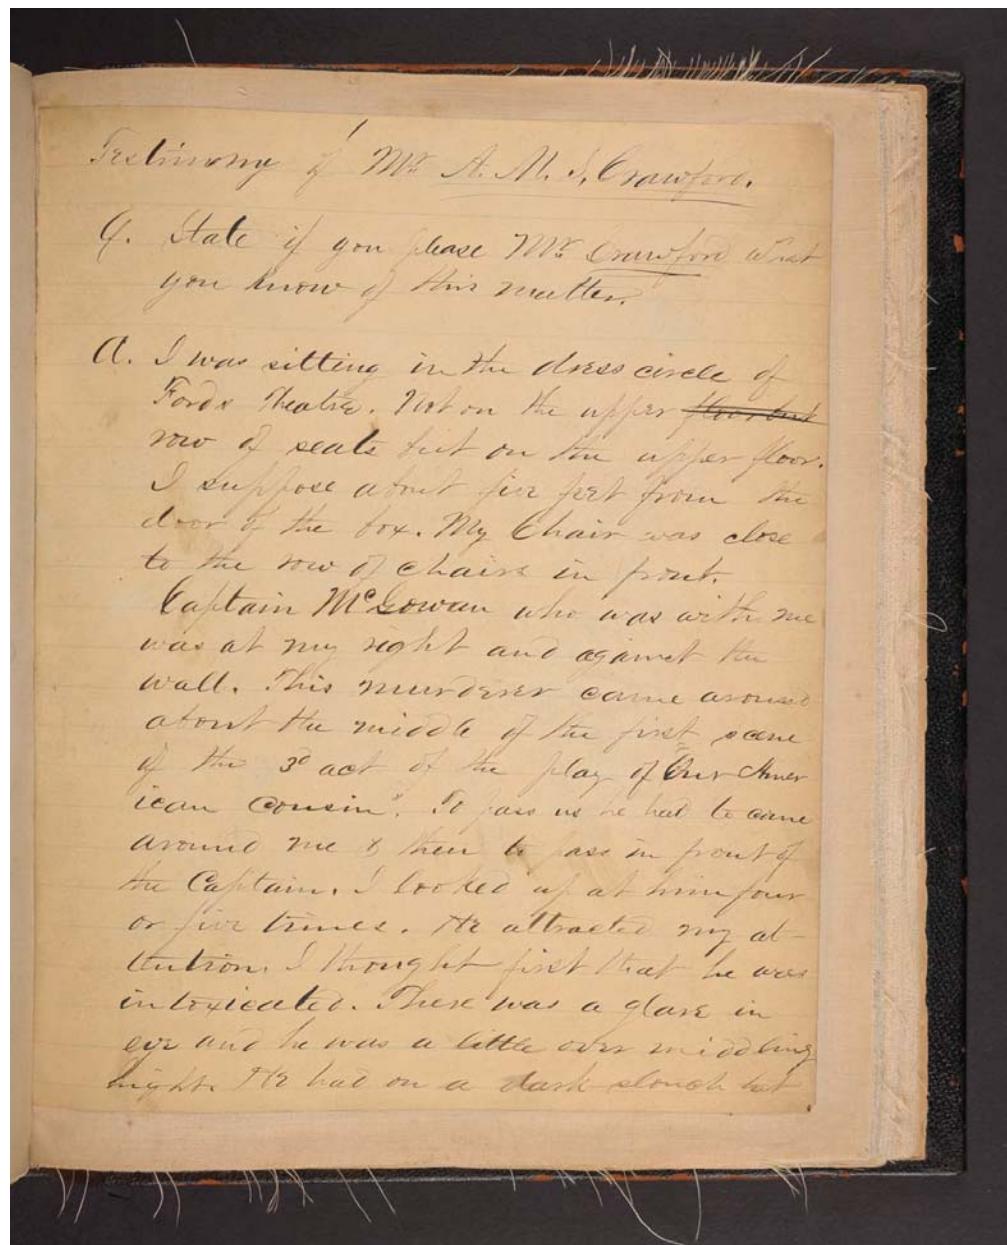 1
Testimony of Mr A. M. S. Crawford.
Q. State if you please Mr. Crawford what
you know of this matter.
A. I was sitting in the dress circle of
Fords Theatre. Not on the upper floor but
row of seats but on the upper floor.
I suppose about five feet from the
door of the box. My Chair was close
to the row of chairs in front.
Captain McGowan who was with me
was at my right and against the
wall. This murderer came around
about the middle of the first scene
of the 3d act of the play of "Our Amer
ican Cousin". To pass us he had to come
around me & then to pass in front of
the Captain. I looked up at him four
or five times. He attracted my at-
tention. I thought first that he was
intoxicated. There was a glare in
eye and he was a little over middling
hight. He had on a dark slouch hat